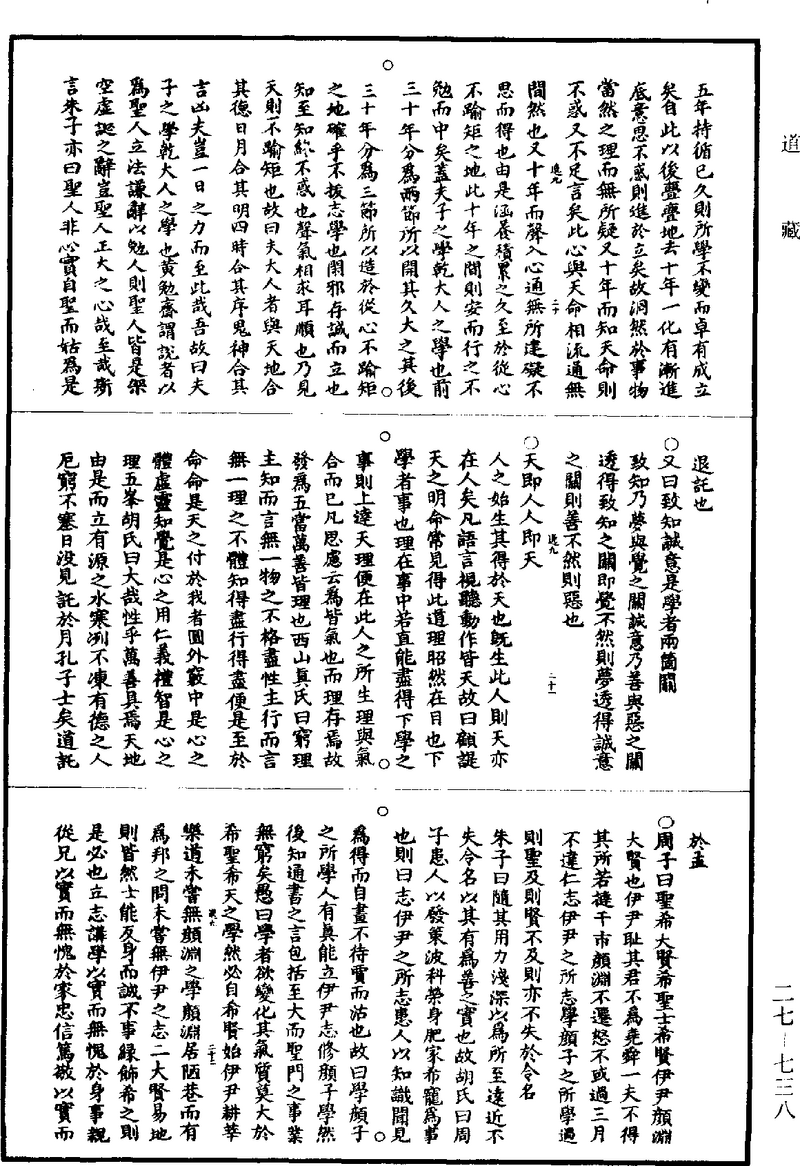 道藏
五年持循已久則所學不變而卓有成立
矣自此以後亹亹地去十年一化有漸進
底意思不惑則進於立矣故洞然於事物
當然之理而無所疑又十年而知天命則
不惑又不足言矣此心與天命相流通無
間然也又十年而聲入心通無所違礙不
思而得也由是涵養積累之久至於從心
不踰矩之地此十年之間則安而行之不
勉而中矣蓋夫子之學乾大人之學也前
三十年分爲兩節所以開其久大之其後
三十年分爲三節所以造於從心不踰矩
之地確乎不拔志學也閑邪存誠而立也
知至知終不惑也聲氣相求耳順也乃見
天則不踰矩也故曰夫大人者與天地合
其德日月合其明四時合其序鬼神合其
吉凶夫豈一日之力而至此哉吾故曰夫
子之學乾大人之學也黄勉齋謂說者以
爲聖人立法謙辭以勉人則聖人皆是架
空虛誕之辭豈聖人正大之心哉至哉斯
言朱子亦曰聖人非心實自聖而姑爲是
退託也
○又曰致知誠意是學者兩箇關
致知乃夢與覺之關誠意乃善與惡之關
透得致知之關即覺不然則夢透得誠意
之關則善不然則惡也
○天即人人即天
人之始生其得於天也旣生此人則天亦
在人矣凡語言視聽動作皆天故曰顧諟
天之明命常見得此道理昭然在目也下
學者事也理在事中若直能盡得下學之
事則上達天理便在此人之所生理與氣
合而已凡思慮云爲皆氣也而理存焉故
發爲五當萬善皆理也西山眞氏曰窮理
主知而言無一物之不格盡性主行而言
無一理之不體知得盡行得盡便是至於
命命是天之付於我者圓外竅中是心之
體虛靈知覺是心之用仁義禮智是心之
理五峯胡氏曰大哉性乎萬善具焉天地
由是而立有源之水寒冽不凍有德之人
厄窮不塞日没見託於月孔子士矣道託
於孟
○周子曰聖希大賢希聖士希賢伊尹顔淵
大賢也伊尹耻其君不爲堯舜一夫不得
其所若撻于市顔淵不遷怒不或過三月
不違仁志伊尹之所志學顔子之所學過
則聖及則賢不及則亦不失於令名
朱子曰隨其用力淺深以爲所至遠近不
失令名以其有爲善之實也故胡氏曰周
子患人以發策波科榮身肥家希寵爲事
也則曰志伊尹之所志患人以知識聞見
爲得而自畫不待賈而沽也故曰學顔子
之所學人有眞能立伊尹志修顔子學然
後知通書之言包括至大而聖門之事業
無窮矣愚曰學者欲變化其氣質莫大於
希聖希天之學然必自希賢始伊尹耕莘
樂道未嘗無顔淵之學顔淵居陋巷而有
爲邦之問未嘗無伊尹之志二大賢易地
則皆然士能反身而誠不事緣飾希之則
是必也立志講學以實而無愧於身事親
從兄以實而無愧於家忠信篤敬以實而
二七—七三八